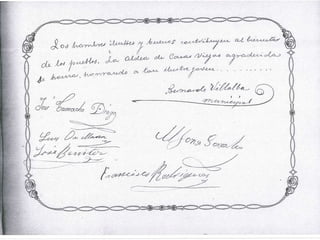 Los hombres ilustres y buenos contribuyen al bienestar
de los pueblos. La Aldea de Casas Viejas agradecida
se honra, honrando a tan ilustre joven..........
Bernardo Villalba
municipal
José Camacho
Luis
José Benítez
Alfonso González
Francisco Rodríguez